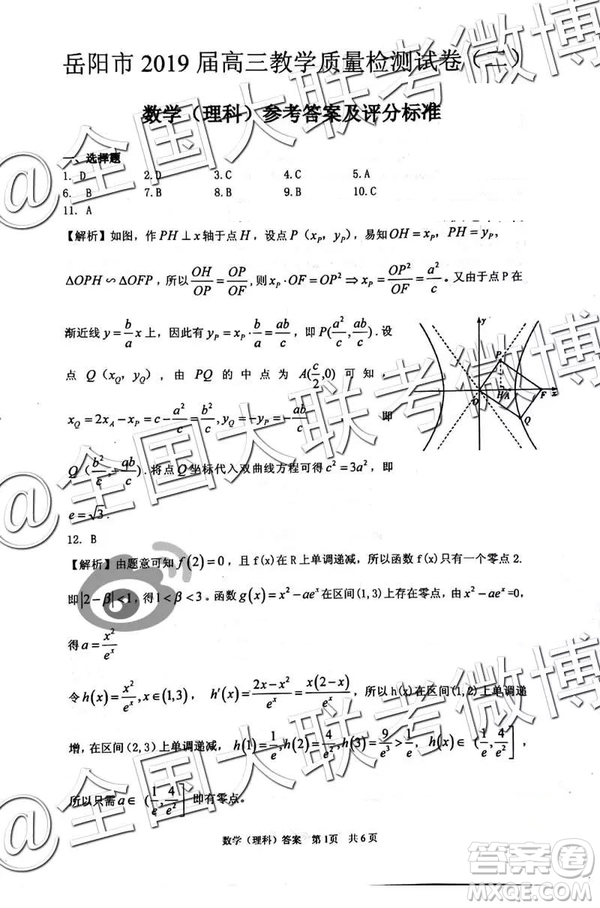 岳阳市 2019 届高三教学质量检测试卷（二）
数学（理科）参考答案及评分标准
一、选择题
1. D 2. D 3. C 4. C 5. A
6. B 7. B 8. B 9. B 10. C
11. A
【解析】如图，作 PH⊥x 轴于点 H，设点 P（x_P，y_P），易知 OH = x_P，PH = y_P，
△OPH∽△OFP，所以 OH/OP = OP/OF，则 x_P·OF = OP² ⇒ x_P = OP²/OF = a²/c．又由于点 P 在
渐近线 y = (b/a)x 上，因此有 y_P = (b/a)x_P = ab/c，即 P(a²/c, ab/c)．设
点 Q（x_Q，y_Q），由 PQ 的中点为 A(c/2,0) 可知，
x_Q = 2x_A − x_P = c − a²/c = b²/c, y_Q = −y_P = −ab/c 即
Q（b²/c, −ab/c）.将点 Q 坐标代入双曲线方程可得 c² = 3a²，即
e = √3.
y
P
O
H
A
F
x
Q
12. B
【解析】由题意可知 f(2)=0，且 f(x)在 R 上单调递减，所以函数 f(x)只有一个零点 2.
即|2−β|<1，得 1<β<3。函数 g(x)=x²−ae^x 在区间(1,3)上存在零点，由 x²−ae^x=0，
得 a = x²/e^x
令 h(x)= x²/e^x, x∈(1,3)，h′(x)= (2x−x²)/e^x = x(2−x)/e^x，所以 h(x)在区间(1,2)上单调递
增，在区间(2,3)上单调递减，h(1)=1/e, h(2)=4/e², h(3)=9/e³>1/e，h(x)∈(1/e, 4/e²]
所以只需 a∈(1/e, 4/e²] 即有零点。
数学（理科）答案 第1页 共6页
@全国大联考微博
@全国大联考微博
@全国大联考微博
答案圈
MXQE.COM